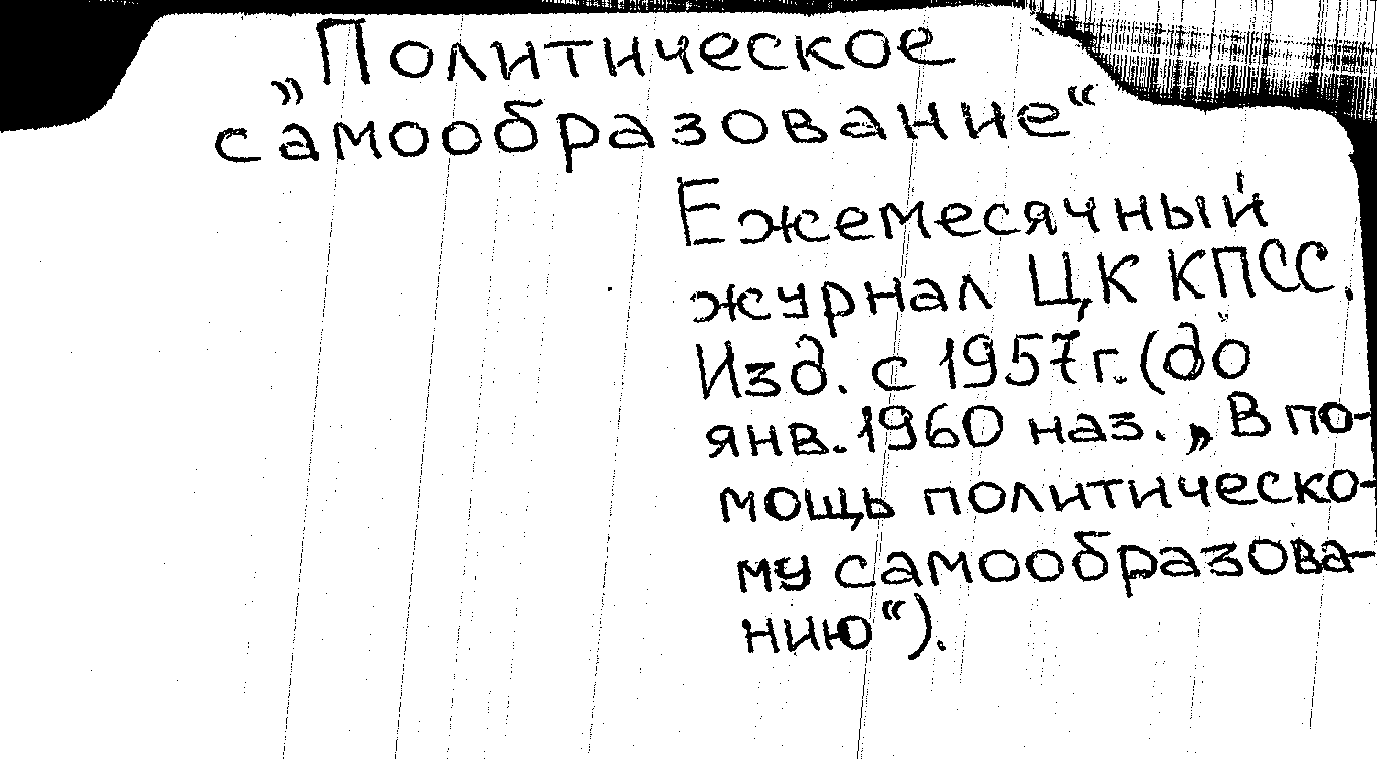 „Политическое
самообразование“
Ежемесячный
журнал ЦК КПСС.
Изд. с 1957г. (до
янв. 1960 наз. „В по-
мощь политическо-
му самообразова-
нию“).